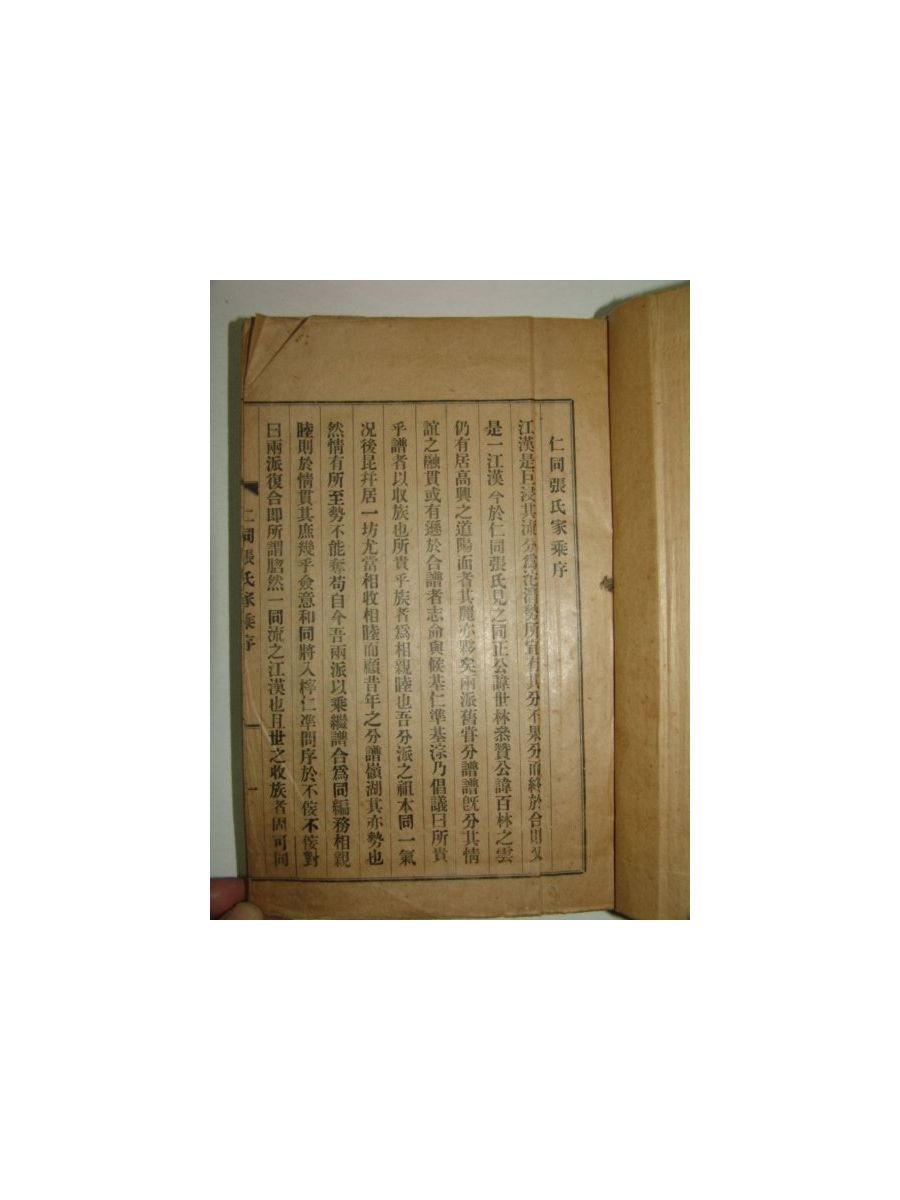 仁同張氏家乘序
江漢是巨浸其流分爲沱潛勢所宜有其分不果分而終於合則又
是一江漢今於仁同張氏見之同正公諱世林叅贊公諱百林之雲
仍有居高興之道陽面者其麗亦夥矣兩派舊嘗分譜譜旣分其情
誼之融貫或有遜於合譜者志侖與候基仁準基淙乃倡議曰所貴
乎譜者以收族也所貴乎族者爲相親睦也吾分派之祖本同一氣
况後昆幷居一坊尤當相收相睦而顧昔年之分譜嶺湖其亦勢也
然情有所至勢不能奪苟自今吾兩派以乘繼譜合爲同編務相親
睦則於情貫其庶幾乎僉意和同將入梓仁準問序於不侫不侫對
曰兩派復合卽所謂脗然一同流之江漢也且世之收族者固可同
仁同張氏家乘序 一